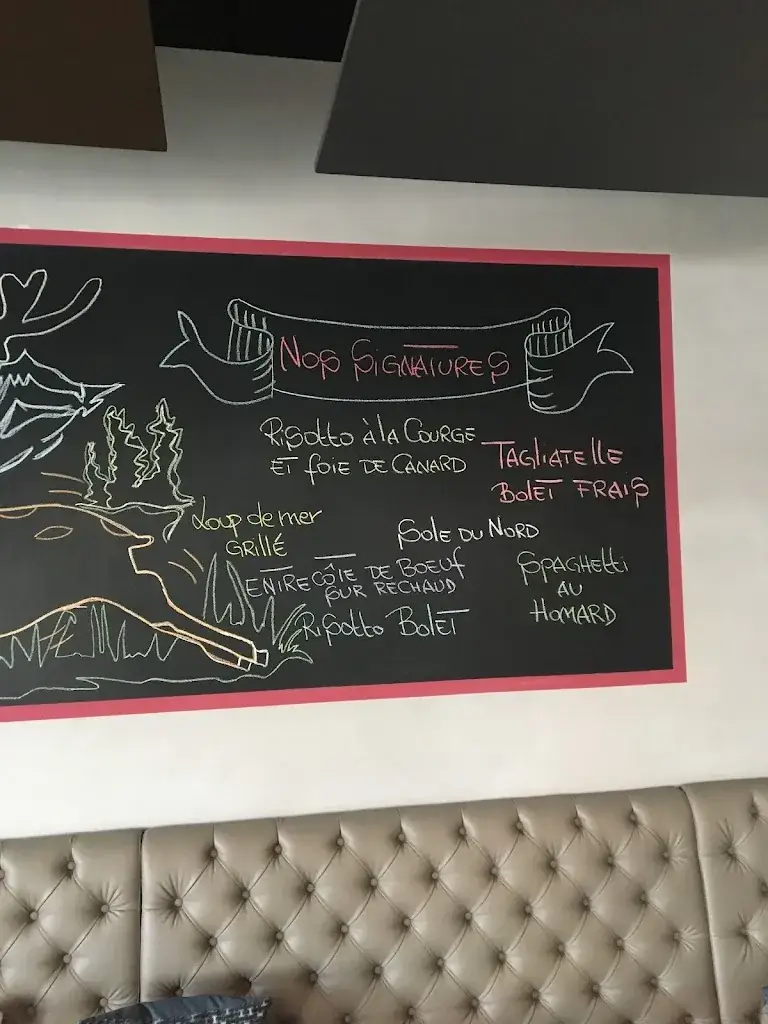 NOS SIGNATURES
RISOTTO À LA COURGE
ET FOIE DE CANARD
TAGLIATELLE
BOLET FRAIS
Loup de mer
GRILLÉ
SOLE DU NORD
ENTRECÔTE DE BOEUF
SUR RECHAUD
SPAGHETTI
AU
HOMARD
RISOTTO BOLET